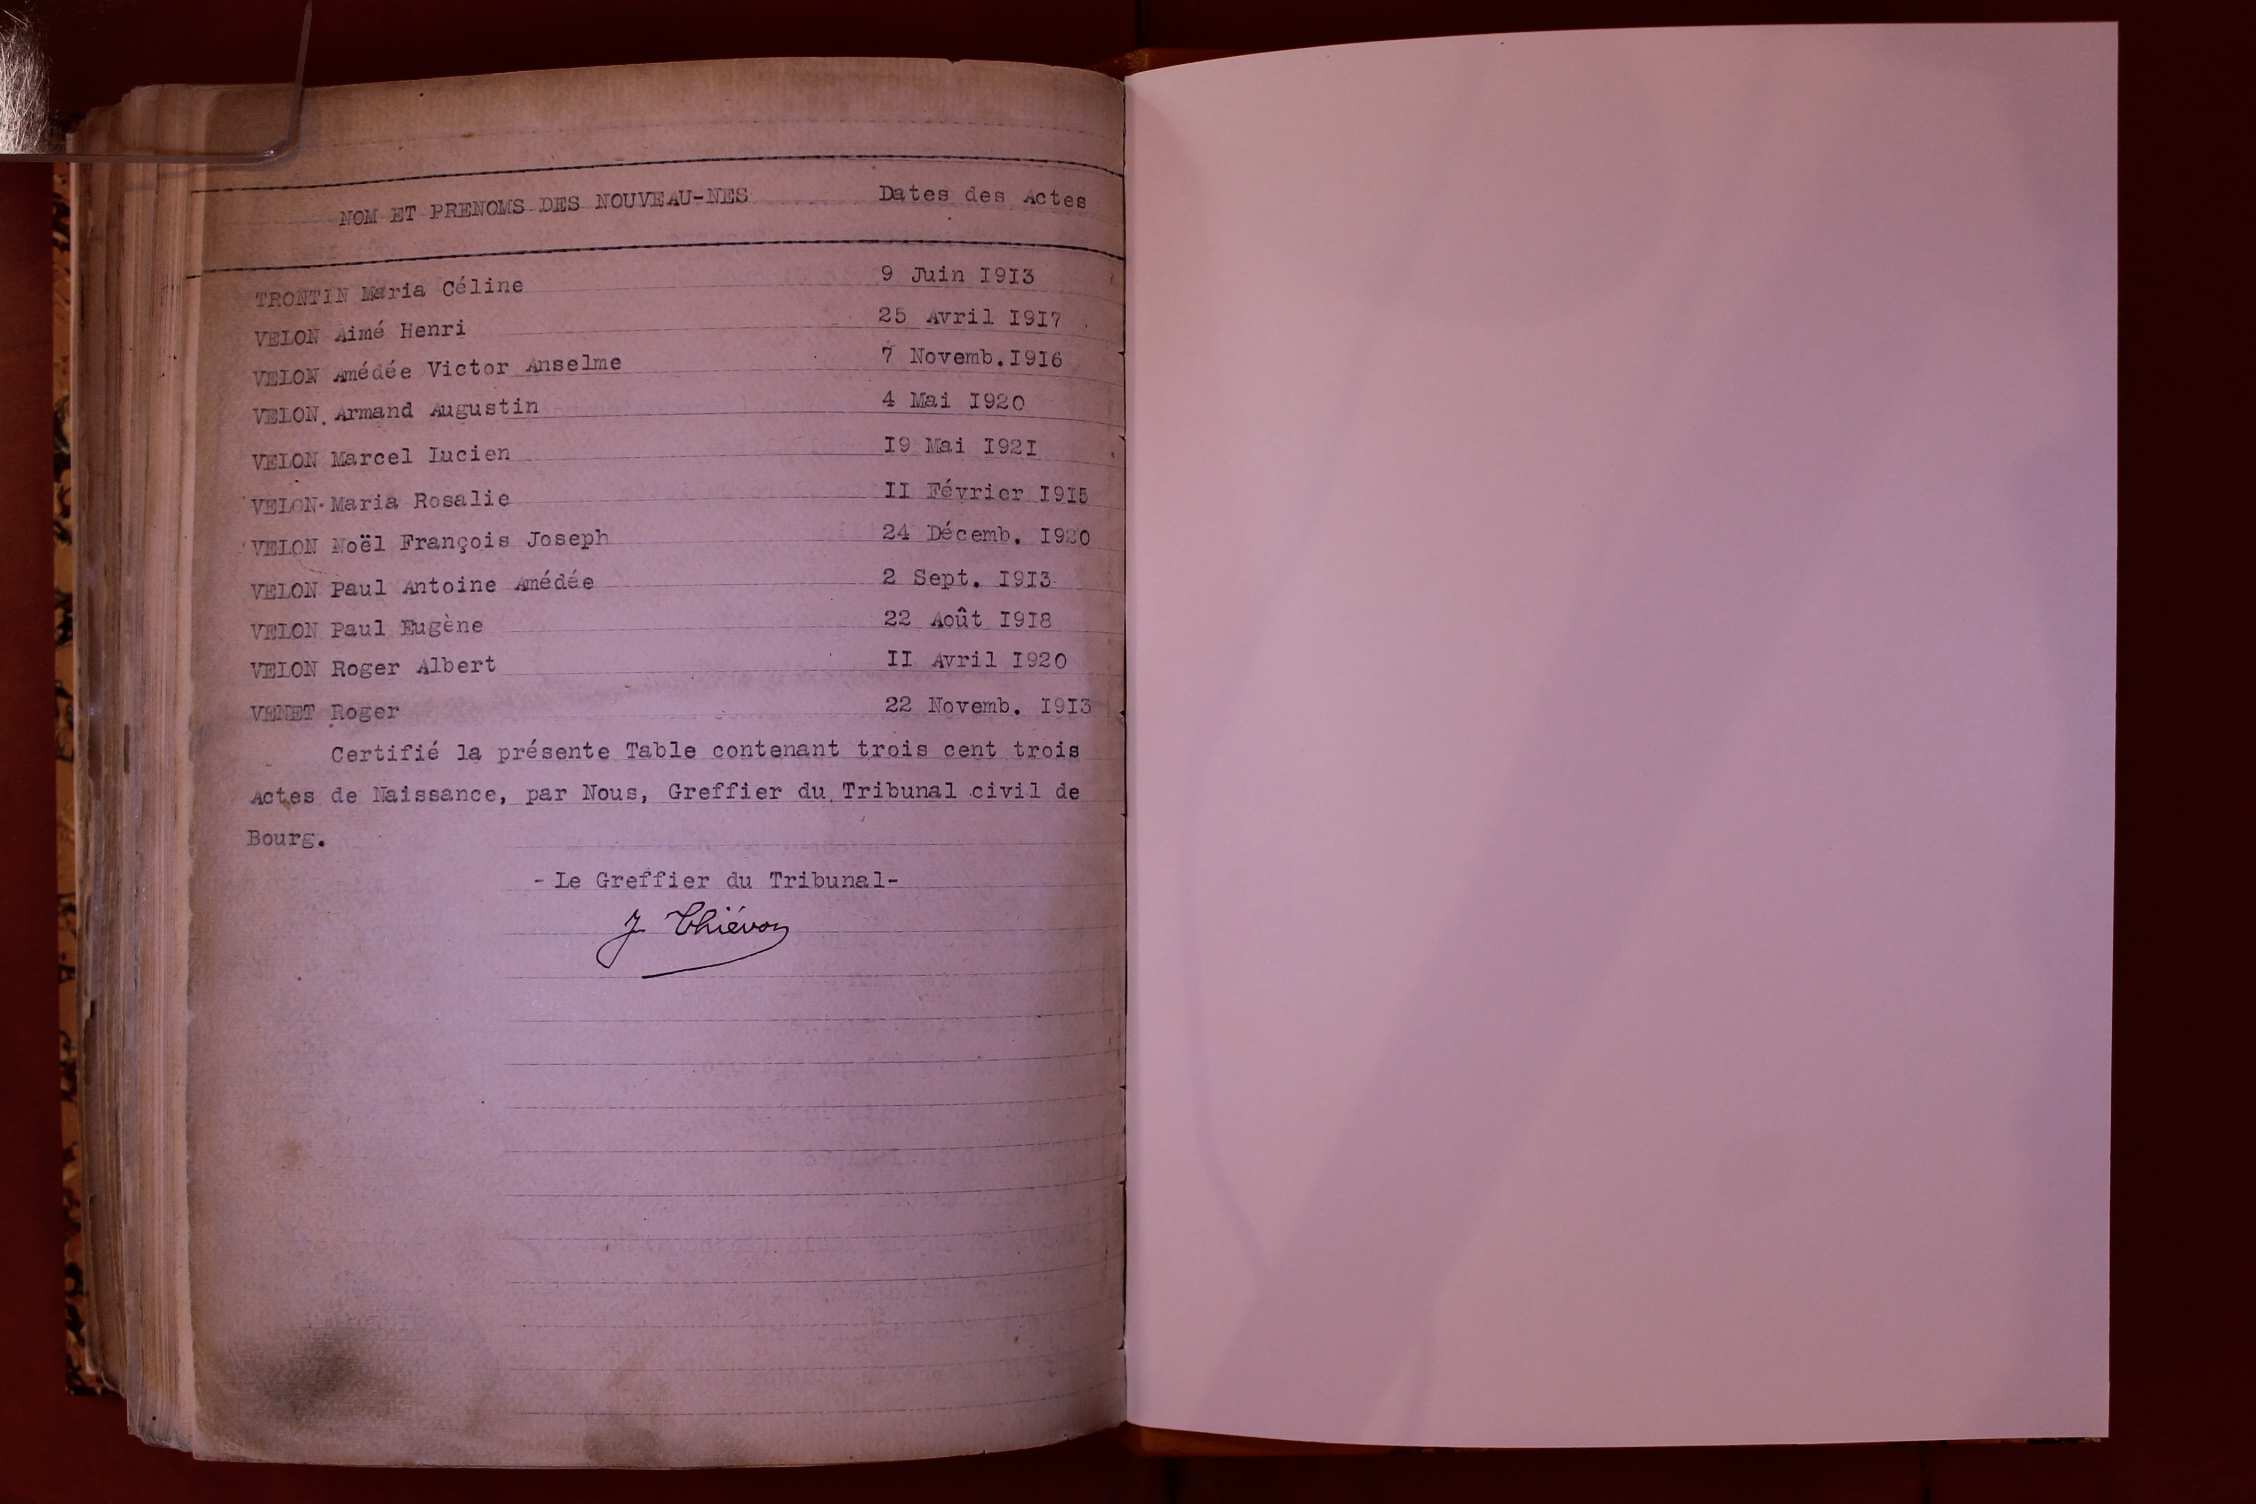 NOM ET PRENOMS DES NOUVEAU-NES Dates des Actes
TRONTIN Maria Céline 9 Juin I9I3
VELON Aimé Henri 25 Avril I9I7
VELON Amédée Victor Anselme 7 Novemb.I9I6
VELON Armand Augustin 4 Mai I920
VELON Marcel Lucien I9 Mai I92I
VELON Maria Rosalie II Février I9I5
VELON Noël François Joseph 24 Décemb. I920
VELON Paul Antoine Amédée 2 Sept. I9I3
VELON Paul Eugène 22 Août I9I8
VELON Roger Albert II Avril I920
VENET Roger 22 Novemb. I9I3
Certifié la présente Table contenant trois cent trois
Actes de Naissance, par Nous, Greffier du Tribunal civil de
Bourg.
- Le Greffier du Tribunal-
J. Thiévon